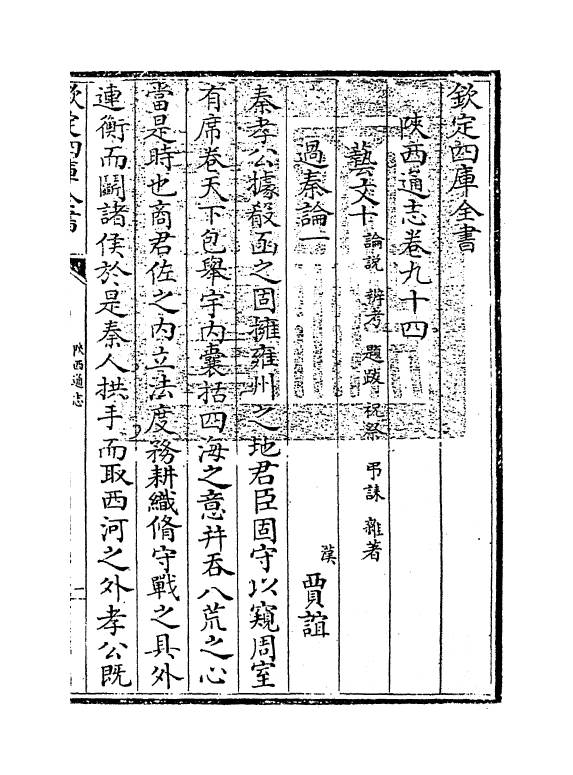 欽定四庫全書
陝西通志卷九十四
藝文十 論說 辨考 題跋 祝祭 弔誄 雜著
過秦論一 漢 賈誼
秦孝公據殽函之固擁雍州之地君臣固守以窺周室
有席卷天下包舉宇內囊括四海之意并吞八荒之心
當是時也商君佐之內立法度務耕織脩守戰之具外
連衡而鬭諸侯於是秦人拱手而取西河之外孝公既
欽定四庫全書
陝西通志
一